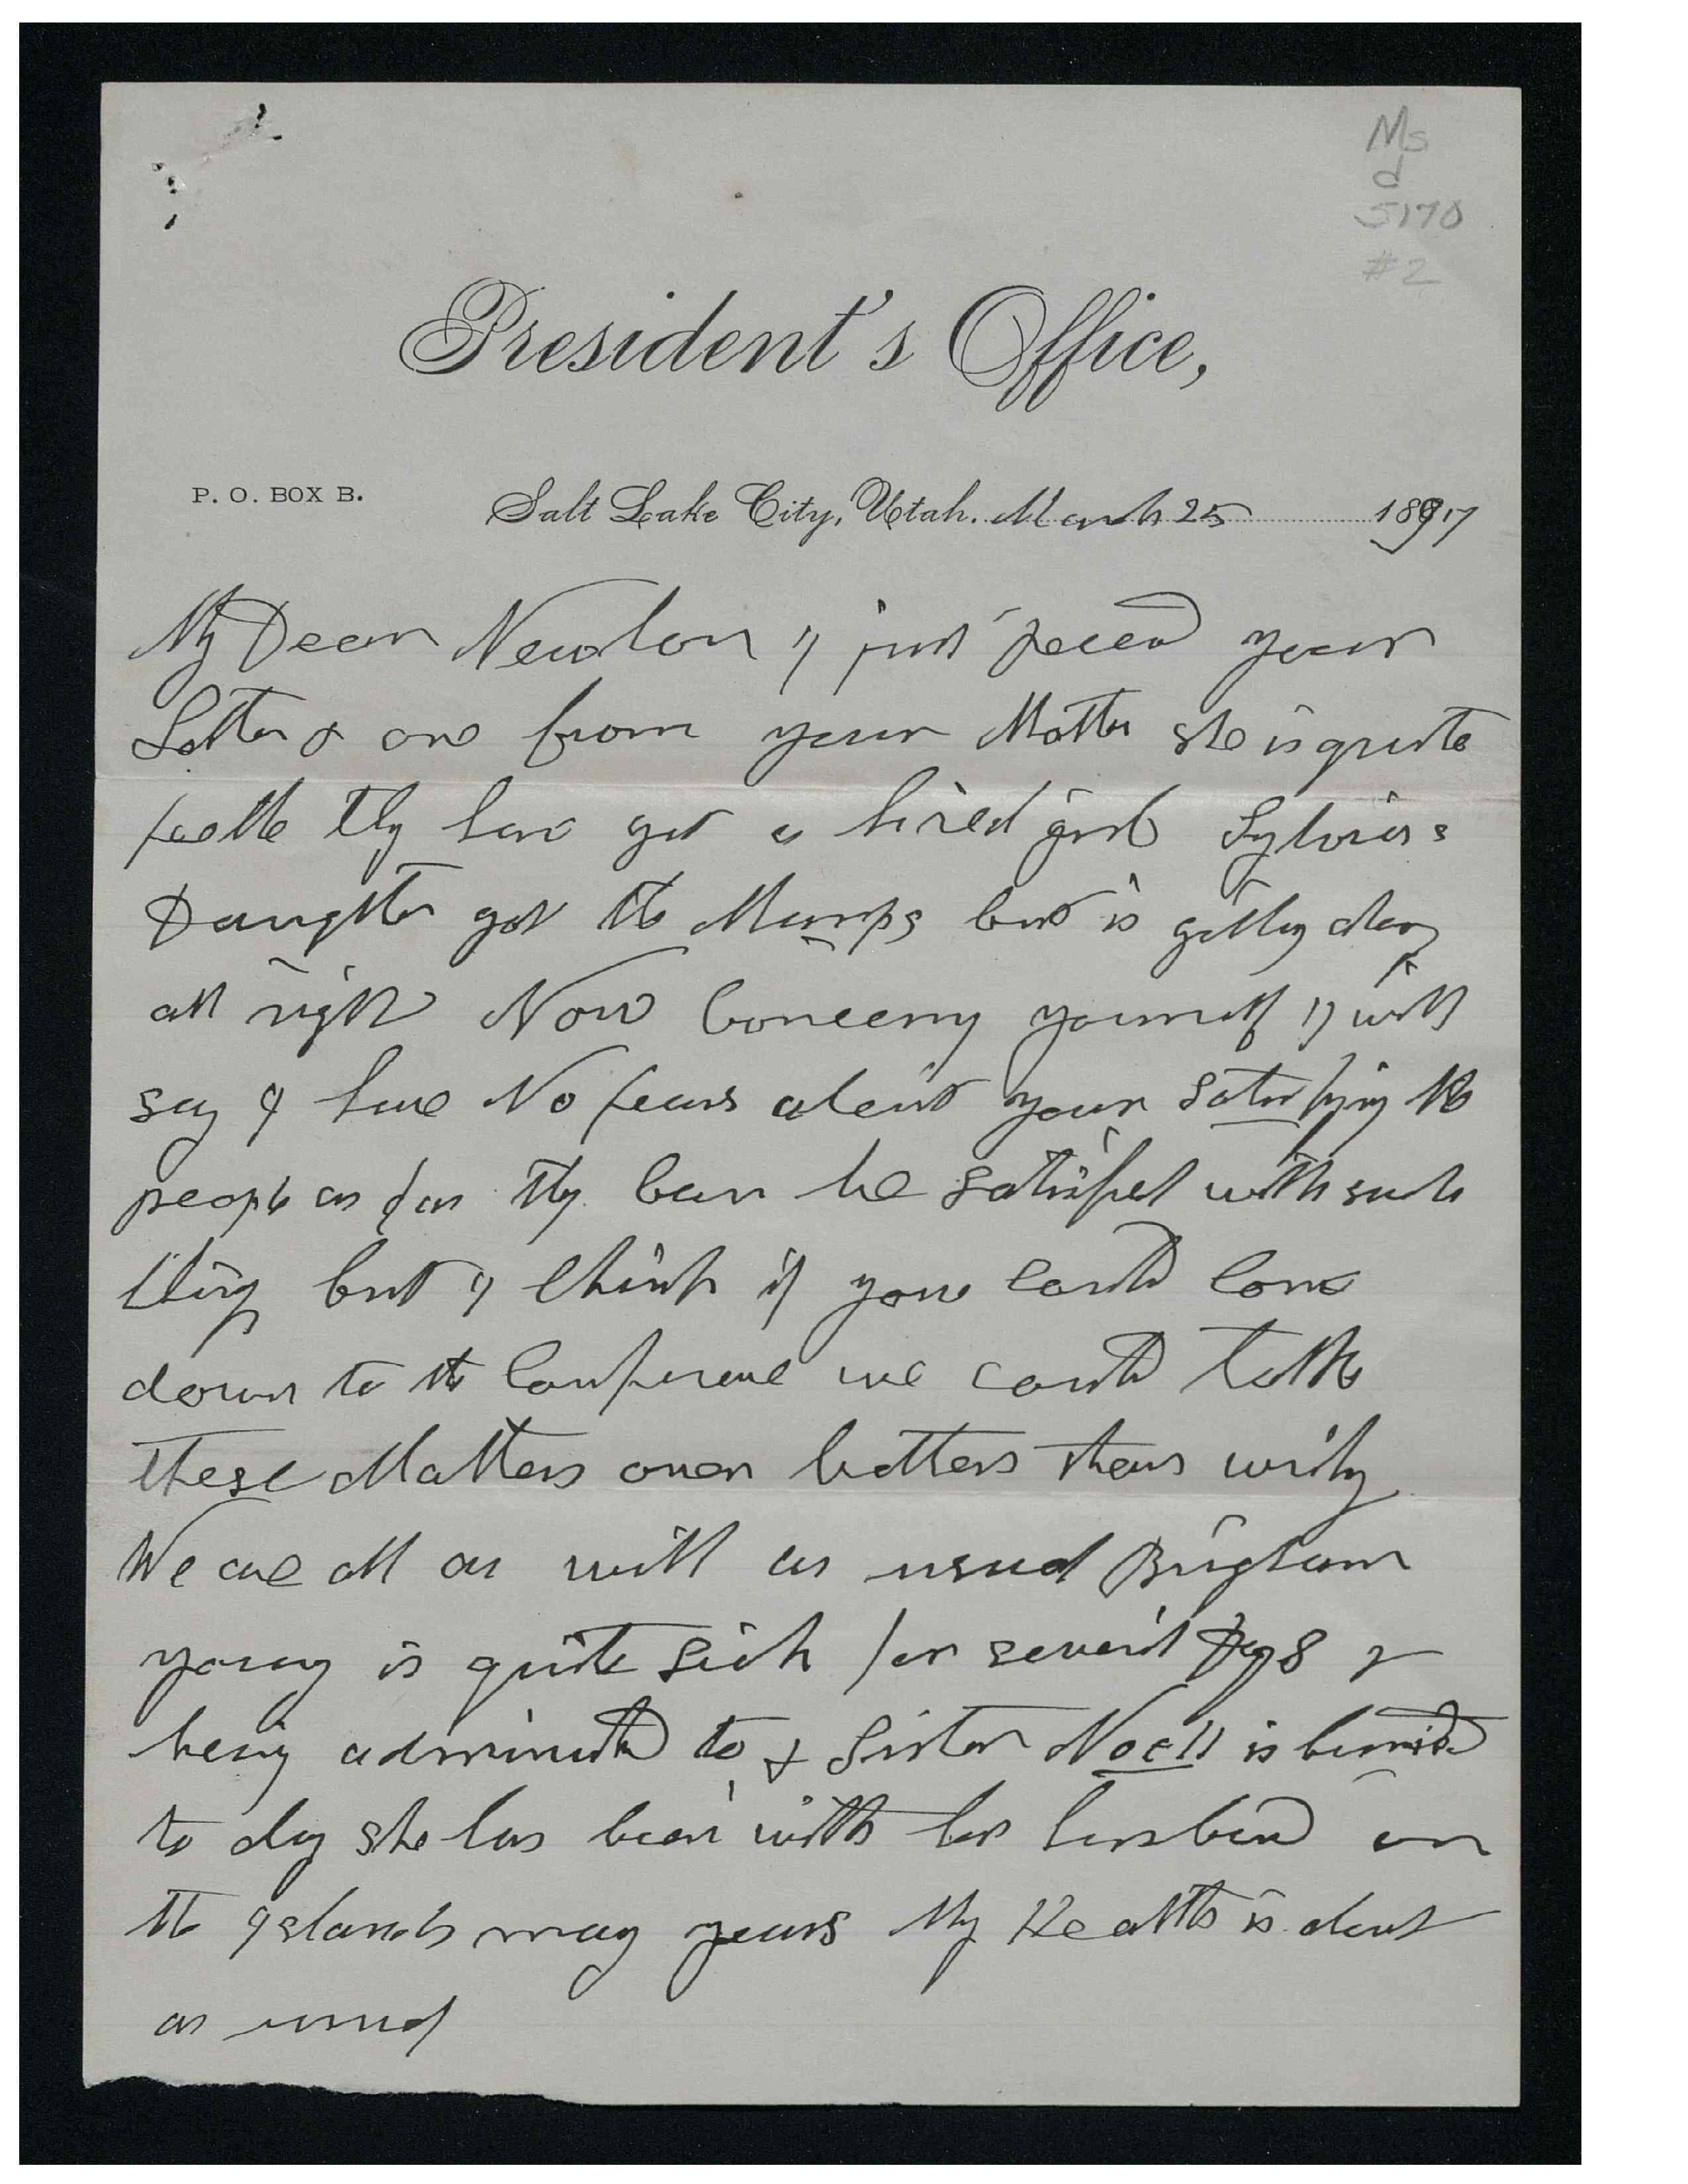 Ms
d
5170
#2
President's Office,
P. O. BOX B.
Salt Lake City, Utah. March 25 1897
My Dear Newton I just receed your
Letter & one from your Mother she is quite
feeble they have got a hired girl Sylvias
Daughter got the Mumps but is getting along
all right Now Concerning yourself I will
say I have No fears about your satisfying the
people as far they Can be satisfied with such
thing but I think if you could Come
down to the Conference we could talk
these Matters over betters than writing
We are all as well as usual Brigham
young is quite sick for several Days &
being administed to & Sister Noell is buried
to day she has been with her husband on
the Islands many years My Health is about
as usual